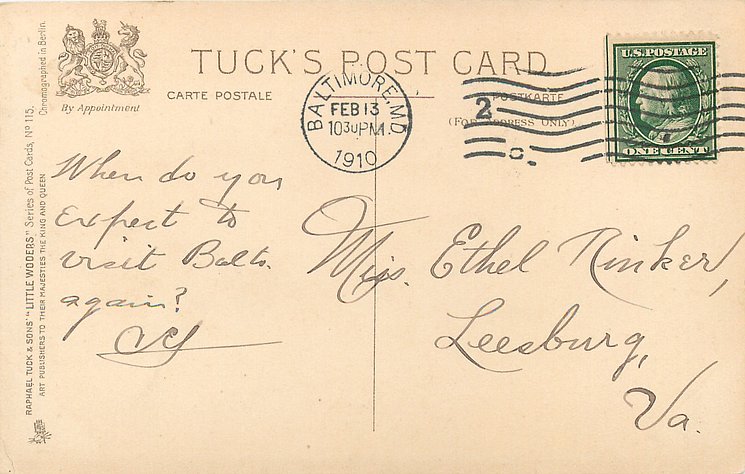 TUCK'S POST CARD
By Appointment
CARTE POSTALE
POSTKARTE
(FOR ADDRESS ONLY)
BALTIMORE, MD.
FEB 13
1030PM
1910
2
U.S. POSTAGE
ONE CENT
Chromographed in Berlin.
RAPHAEL TUCK & SONS' "LITTLE WOOERS" Series of Post Cards, No 115.
ART PUBLISHERS TO THEIR MAJESTIES THE KING AND QUEEN
When do you
expect to
visit Balto.
again?
Miss. Ethel Rinker,
Leesburg,
Va.